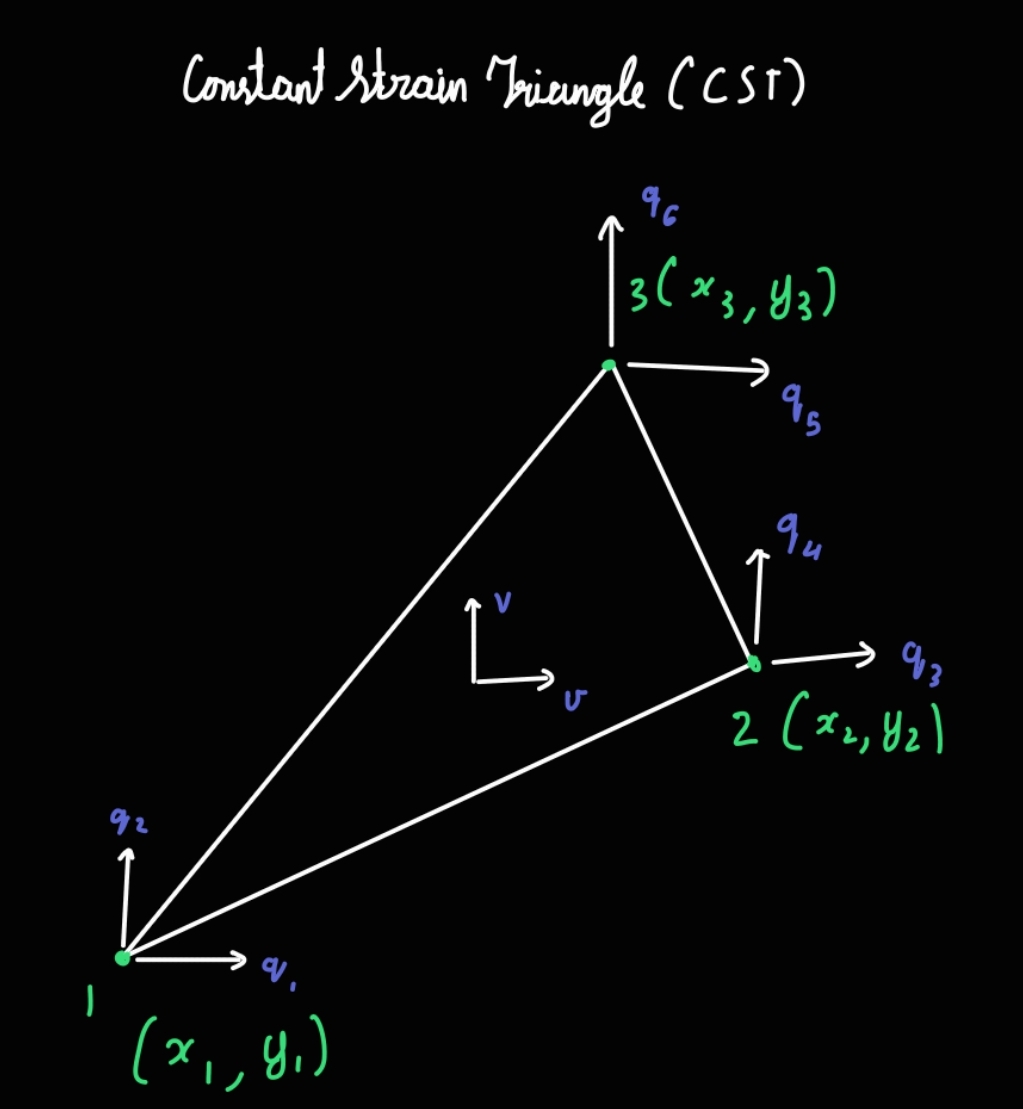 Constant Strain Triangle (CST)
q₆
3(x₃, y₃)
q₅
q₄
v
q₃
v
2 (x₂, y₂)
q₂
q₁
1
(x₁, y₁)